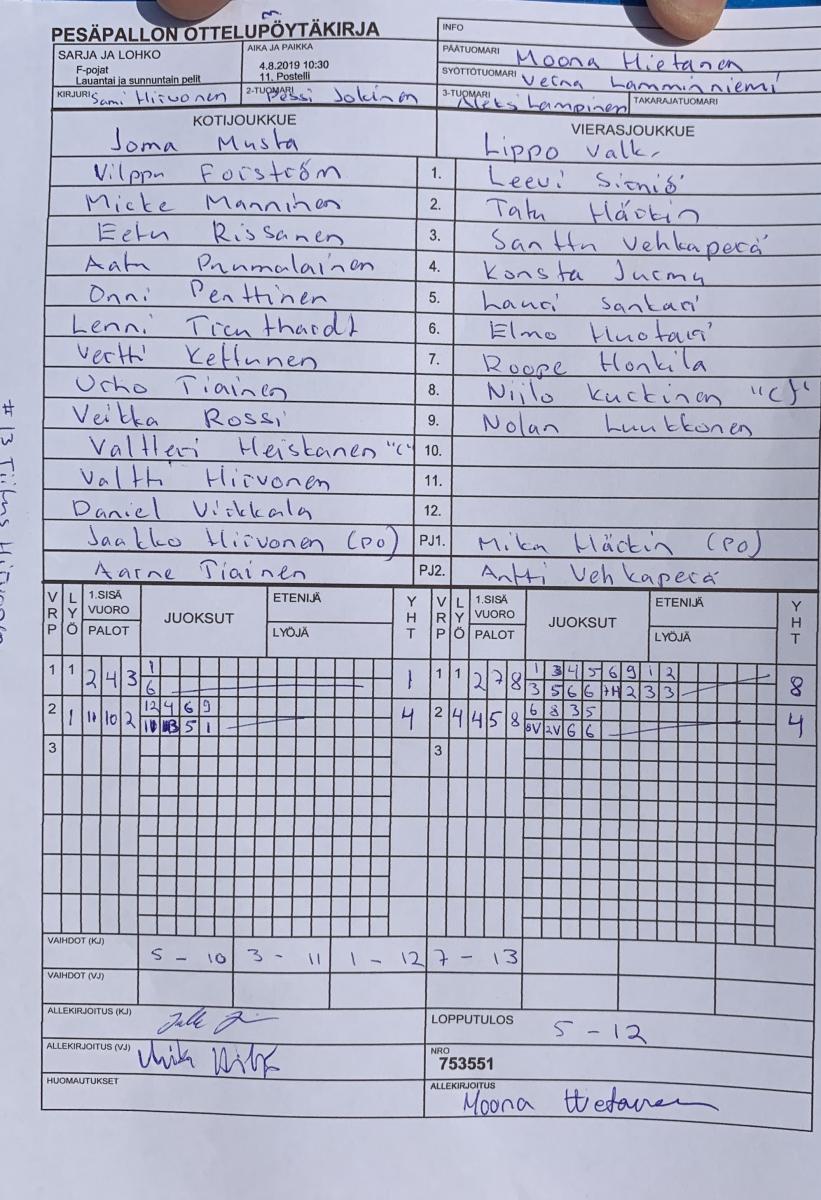 PESÄPALLON OTTELUPÖYTÄKIRJA
INFO
SARJA JA LOHKO
F-pojat
Lauantai ja sunnuntain pelit
AIKA JA PAIKKA
4.8.2019 10:30
11. Postelli
PÄÄTUOMARI Moona Hietanen
SYÖTTÖTUOMARI Verna Lamminniemi
KIRJURI Sami Hirvonen
2-TUOMARI Pessi Jokinen
3-TUOMARI Aleksi Lampinen
TAKARAJATUOMARI
KOTIJOUKKUE
Joma Musta
VIERASJOUKKUE
Lippo Valk.
Vilppu Forström 1. Leevi Sirniö
Micke Manninen 2. Tatu Härkin
Eetu Rissanen 3. Santtu Vehkaperä
Aatu Puumalainen 4. Konsta Jurmu
Onni Penttinen 5. Lauri Sankari
Lenni Trenthardt 6. Elmo Huotari
Vertti Kettunen 7. Roope Honkila
Urho Tiainen 8. Niilo Kurkinen "C"
Veikka Rossi 9. Nolan Luukkonen
Valtteri Heiskanen "C" 10.
Valtti Hirvonen 11.
Daniel Virkkala 12.
Jaakko Hirvonen (PO) PJ1. Mika Härkin (PO)
Aarne Tiainen PJ2. Antti Vehkaperä
# 13
VRP LYÖ 1.SISÄ VUORO PALOT JUOKSUT ETENIJÄ LYÖJÄ YHT VRP LYÖ 1.SISÄ VUORO PALOT JUOKSUT ETENIJÄ LYÖJÄ YHT
1 1 2 4 3 1 1 1 1 2 7 8 1 3 4 5 6 9 1 2 8
6 3 5 6 6 2 3 3
2 1 11 10 2 12 4 6 9 4 2 4 4 5 8 6 8 3 5 4
5 1 2V 6 6
3 3
VAIHDOT (KJ) 5 - 10 3 - 11 1 - 12 7 - 13
VAIHDOT (VJ)
ALLEKIRJOITUS (KJ)
LOPPUTULOS 5 - 12
ALLEKIRJOITUS (VJ)
NRO
753551
HUOMAUTUKSET
ALLEKIRJOITUS
Moona Hietanen